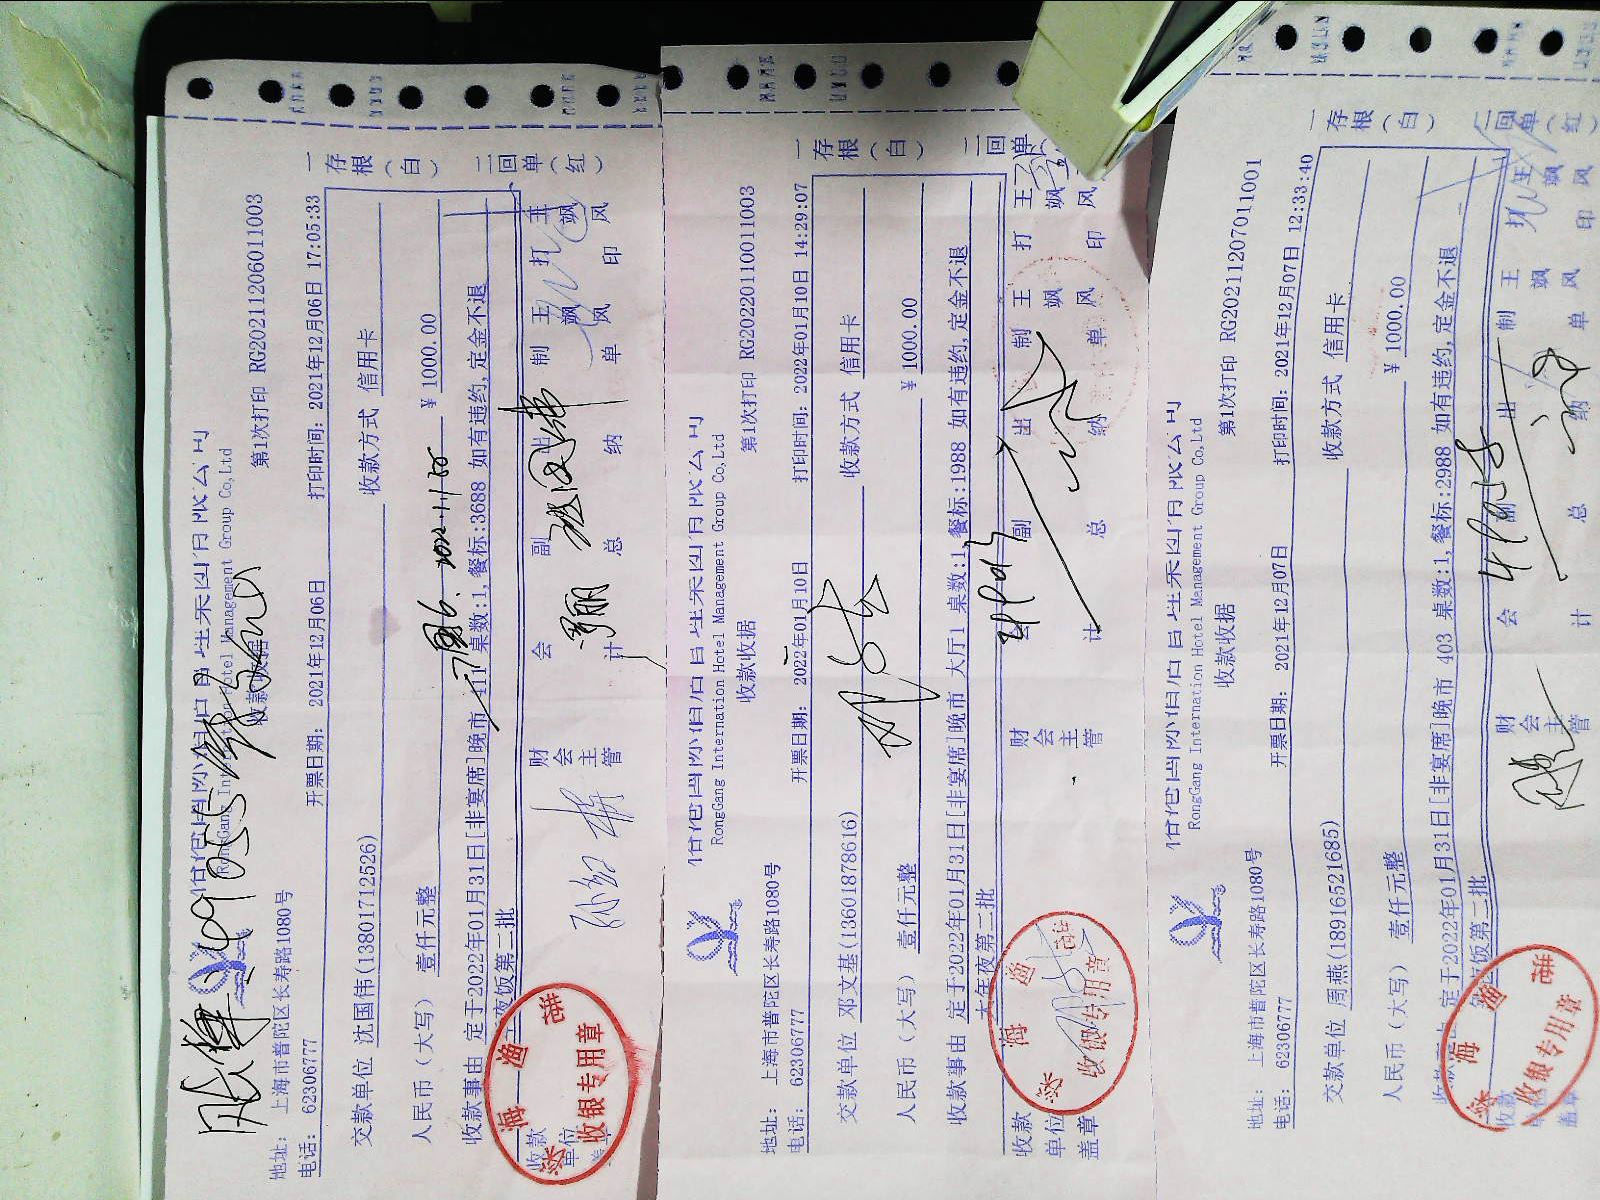 RongGang Internation Hotel Management Group Co,Ltd
收款收据
第1次打印 RG20211206011003
地址: 上海市普陀区长寿路1080号
电话: 62306777
开票日期: 2021年12月06日
打印时间: 2021年12月06日 17:05:33
交款单位 沈国伟(13801712526)
收款方式 信用卡
人民币(大写) 壹仟元整
¥ 1000.00
收款事由 定于2022年01月31日[非宴席]晚市 411 桌数:1,餐标:3688 如有违约,定金不退
夜饭第二批
收款
财会主管
会计
副总
出纳
制单 王飒风
打印 王飒风
一存根(白)
二回单(红)
收银专用章
RongGang Internation Hotel Management Group Co,Ltd
收款收据
第1次打印 RG20220110011003
地址: 上海市普陀区长寿路1080号
电话: 62306777
开票日期: 2022年01月10日
打印时间: 2022年01月10日 14:29:07
交款单位 邓文基(13601878616)
收款方式 信用卡
人民币(大写) 壹仟元整
¥ 1000.00
收款事由 定于2022年01月31日[非宴席]晚市 大厅1 桌数:1,餐标:1988 如有违约,定金不退
大年夜第二批
收款单位盖章
财会主管
会计
副总
出纳
制单 王飒风
打印 王飒风
一存根(白)
二回单
收银专用章
RongGang Internation Hotel Management Group Co,Ltd
收款收据
第1次打印 RG20211207011001
地址: 上海市普陀区长寿路1080号
电话: 62306777
开票日期: 2021年12月07日
打印时间: 2021年12月07日 12:33:40
交款单位 周燕(18916521685)
收款方式 信用卡
人民币(大写) 壹仟元整
¥ 1000.00
定于2022年01月31日[非宴席]晚市 403 桌数:1,餐标:2988 如有违约,定金不退
夜饭第二批
收款
盖章
财会主管
会计
副总
出纳
制单 王飒风
打印 王飒风
一存根(白)
二回单(红)
收银专用章